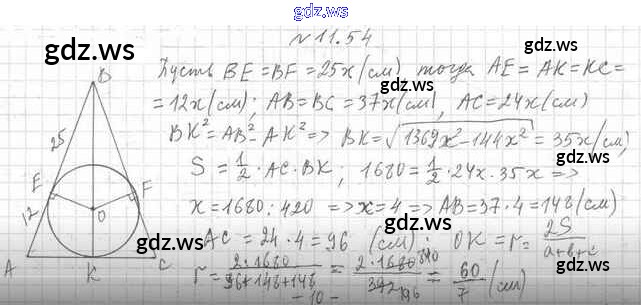 gdz.ws
№ 11.54
gdz.ws
Пусть BE = BF = 25x (см) тогда AE = AK = KC =
= 12x (см); AB = BC = 37x (см), AC = 24x (см)
gdz.ws
BK² = AB² - AK² => BK = √1369x² - 144x² = 35x (см),
S = 1/2 · AC · BK; 1680 = 1/2 · 24x · 35x =>
x = 1680 : 420 => x = 4 => AB = 37 · 4 = 148 (см)
AC = 24 · 4 = 96 (см); OK = r = 2S/a+b+c
r = 2·1680/96+148+148 = 2·1680 840/392 196 = 60/7 (см)
- 10 -
B
25
E
F
12
O
A
K
C
gdz.ws
gdz.ws
gdz.ws